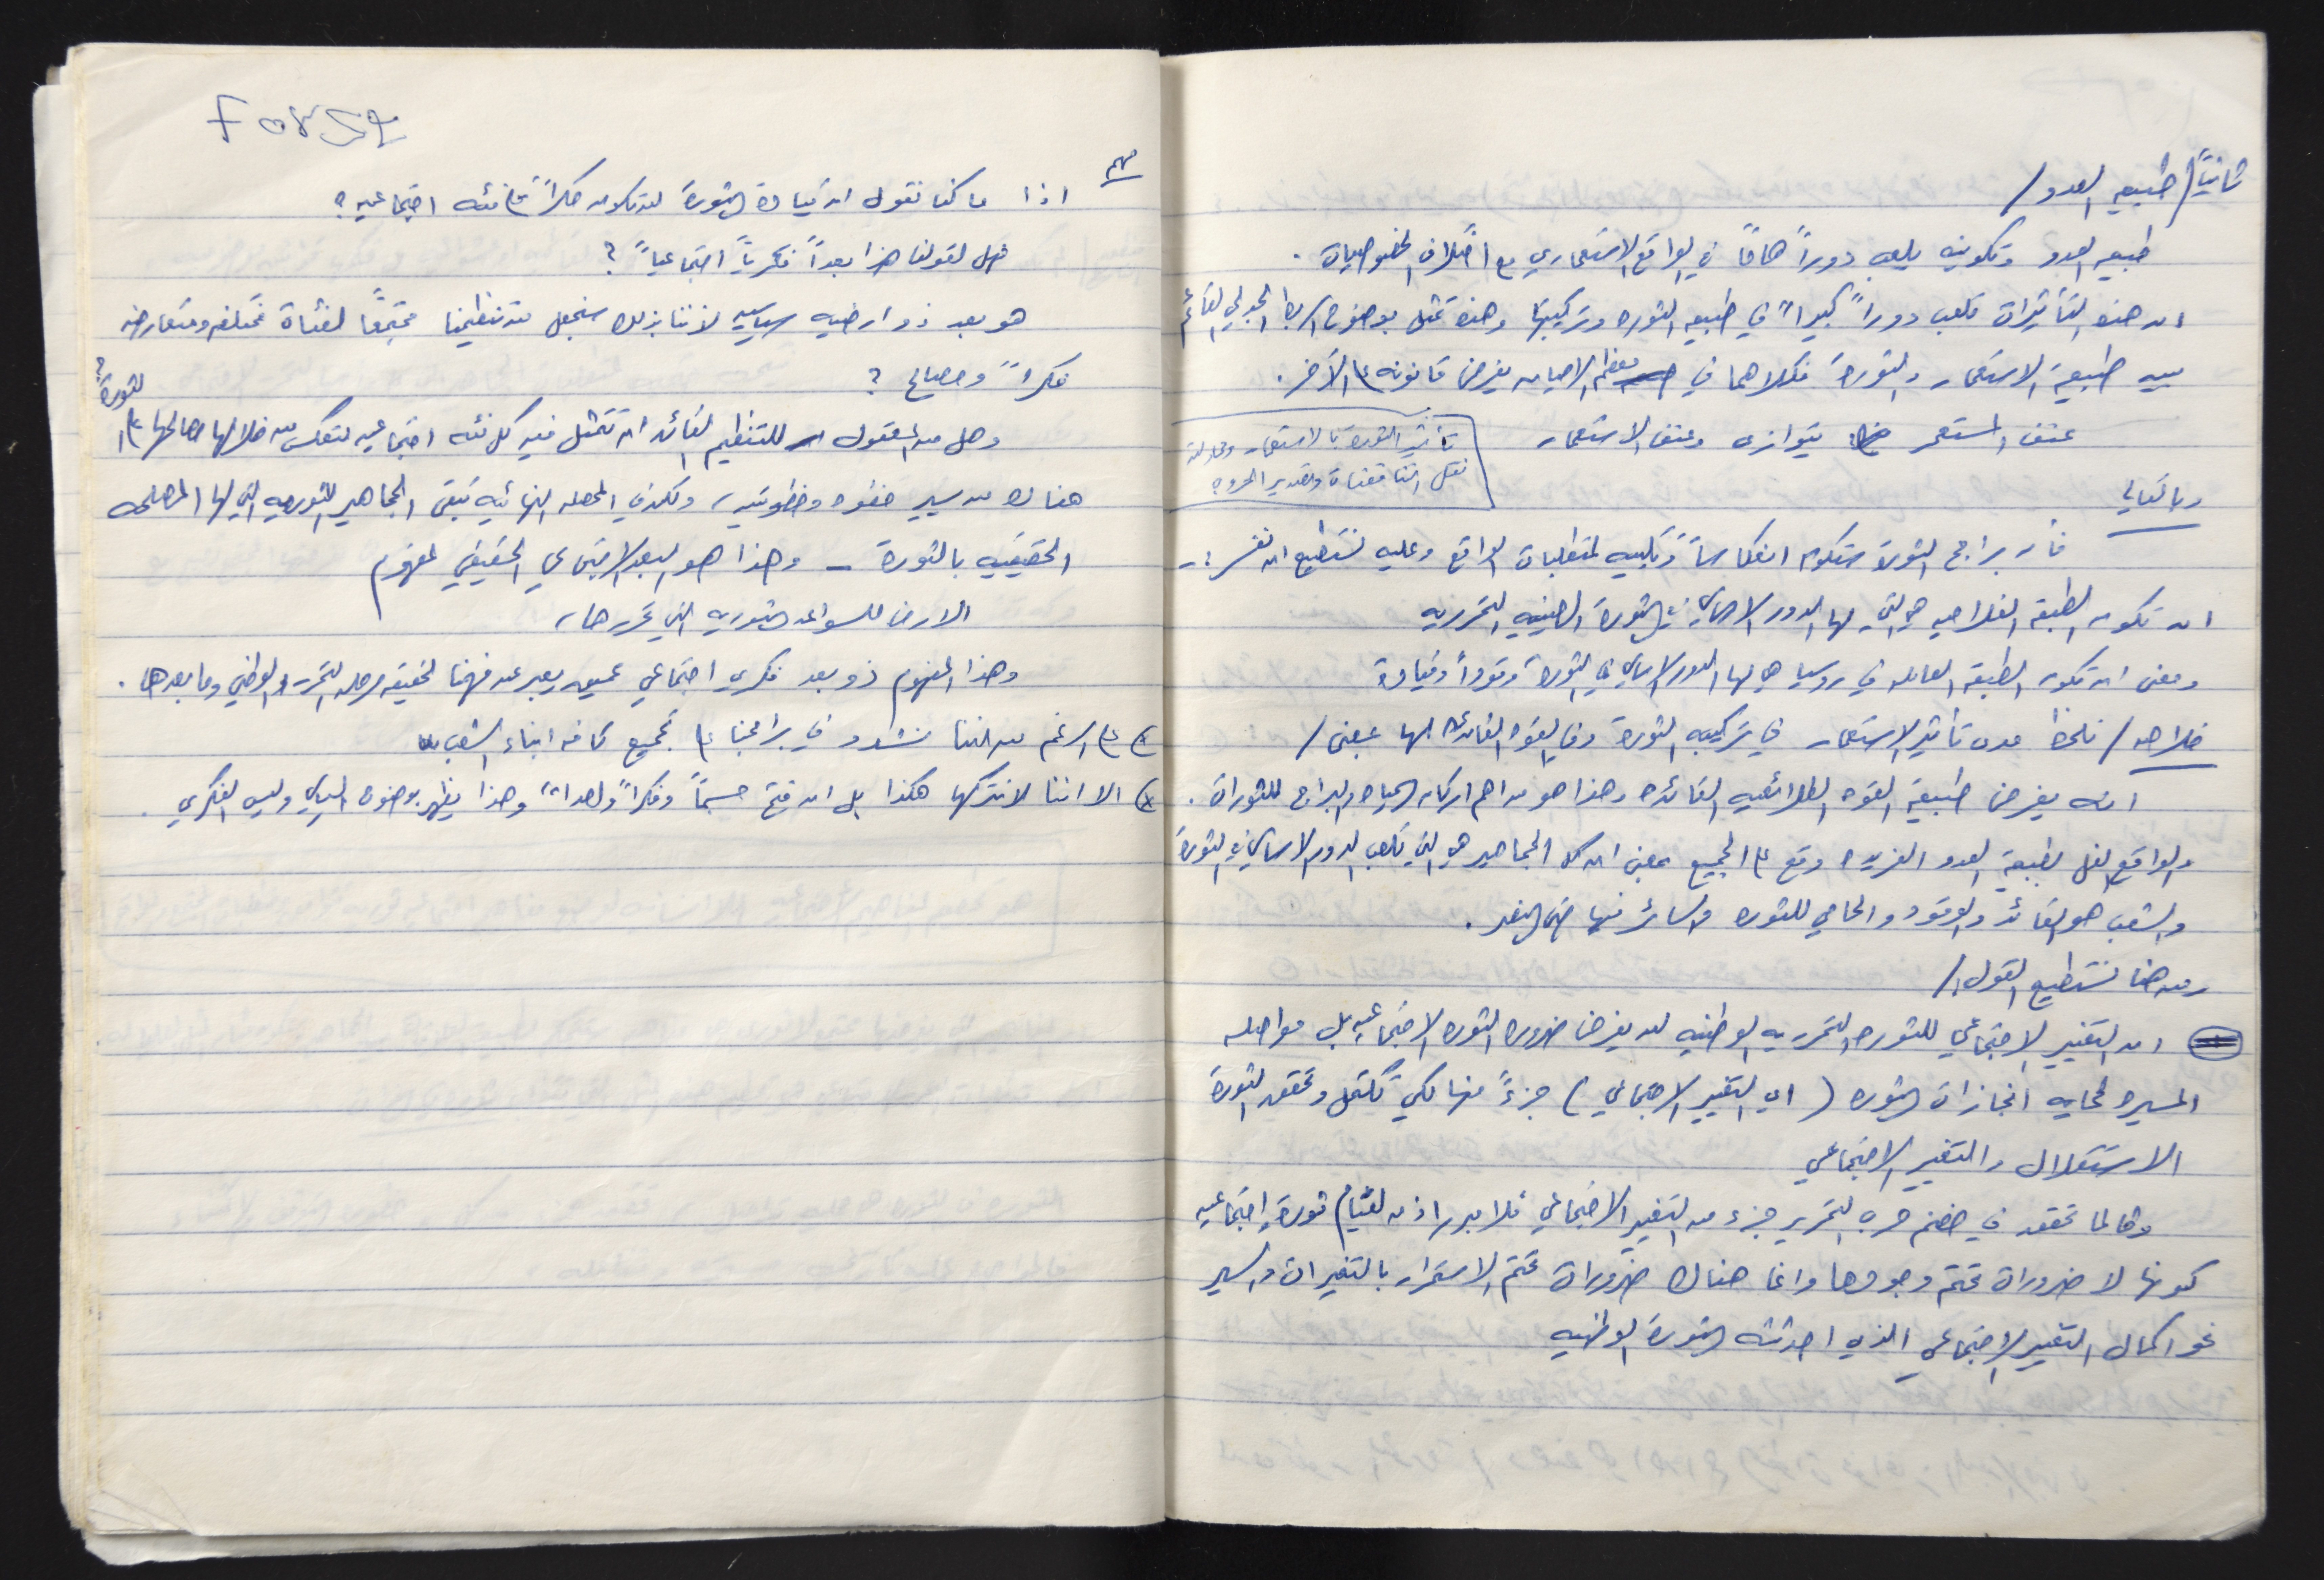 ثانياً/ طبيعه العدو/
طبيعه العدو وتكوينه يلعب دوراً هاماً في الواقع الاستعماري مع اختلاف الخصوصيات .
ان هذه التأثيرات تلعب دوراً كبيراً في طبيعه الثوره وتركيبتها وهذه تمثل بوضوح الربط الجدلي القائم
بين طبيعة الاستعمار والثورة فكلاهما في معظم الاحيان يفرض قانونه على الآخر .
عنف المستعمر يتوازى وعنف الاستعمار
تأثير الثورة بالاستعمار ومحاولة
نقل التناقضات وتصدير الحروب
وبالتالي
فأن برامج الثورة ستكون انعكاساً وتلبيه لمتطلبات الواقع وعليه نستطيع ان نفسر :-
ان تكون الطبقه الفلاحيه هي التي لها الدور الاساسي في الثورة الصينيه التحرريه
ومعنى ان تكون الطبقه العامله في روسيا هي لها الدور الاساسي في الثورة وقوداً وقيادة
خلاصه/ نلحظ مدى تأثير الاستعمار في تركيبه الثورة وفي القوه القائده لها بمعنى/
انه يفرض طبيعة القوه الطلائعيه القائده وهذا هو من اهم اركان الحياه والبرامج للثورات .
والواقع لطبيعة العدو الفريده وقع على الجميع بمعنى ان كل الجماهير هي التي تلعب الدور الاساسي في الثورة
والشعب هو القائد والوقود والحامي للثوره والسائر فيها حتى النصر .
ومن هنا نستطيع القول:/
ان التغيير الاجتماعي للثوره التحرريه الوطنيه لن يفرض ضروره الثوره الاجتماعيه بل مواصله
المسيره لحمايه انجازات الثوره ( اي التغيير الاجتماعي ) جزءً منها لكي تكتمل وتحقق الثورة
الاستقلال والتغيير الاجتماعي
وطالما تحقق في خضم حرب التحرير جزء من التغيير الاجتماعي فلا مبرر اذن لقيام ثورة اجتماعيه
كونها لا ضرورات تحتم وجودها وانما هناك ضرورات تحتم الاستمرار بالتغيرات والسير
نحو اكمال التغيير الاجتماعي الذي احدثته الثورة الوطنيه
مهم
اذا ما كنا نقول ان قيادة الثورة لن تكون حكراً على فئه اجتماعيه ؟
فهل لقولنا هذا بعداً فكرياً اجتماعياً ؟
هو بعد ذو ارضيه سياسيه لاننا بذلك سنجعل من تنظيمنا مجتمعاً لفئات مختلفه ومتعارضه
فكراً ومصالح ؟
وهل من المعقول للتنظيم القائد ان تتمثل فيه كل فئه اجتماعيه لتعكس من خلالها مصالحها على الثورة ؟
هناك من يسير خطوه وخطوتين ، ولكن في المحصله النهائيه تبقى الجماهير الثوريه التي لها المصلحه
الحقيقيه بالثورة - وهذا هو البعد الاجتماعي الحقيقي لمفهوم
الارض للسواعد الثوريه التي تحررها ،
وهذا المفهوم ذو بعد فكري اجتماعي عميق يعبر عن فهمنا لحقيقه مرحله التحرر الوطني وما بعدها .
*) على الرغم من اننا نشدد في برامجنا على تجميع كافه ابناء الشعب
*) الا اننا لا نتركها هكذا بل ان فتح جسماً وفكراً واحداً وهذا يظهر بوضوح السياسي وليس الفكري .